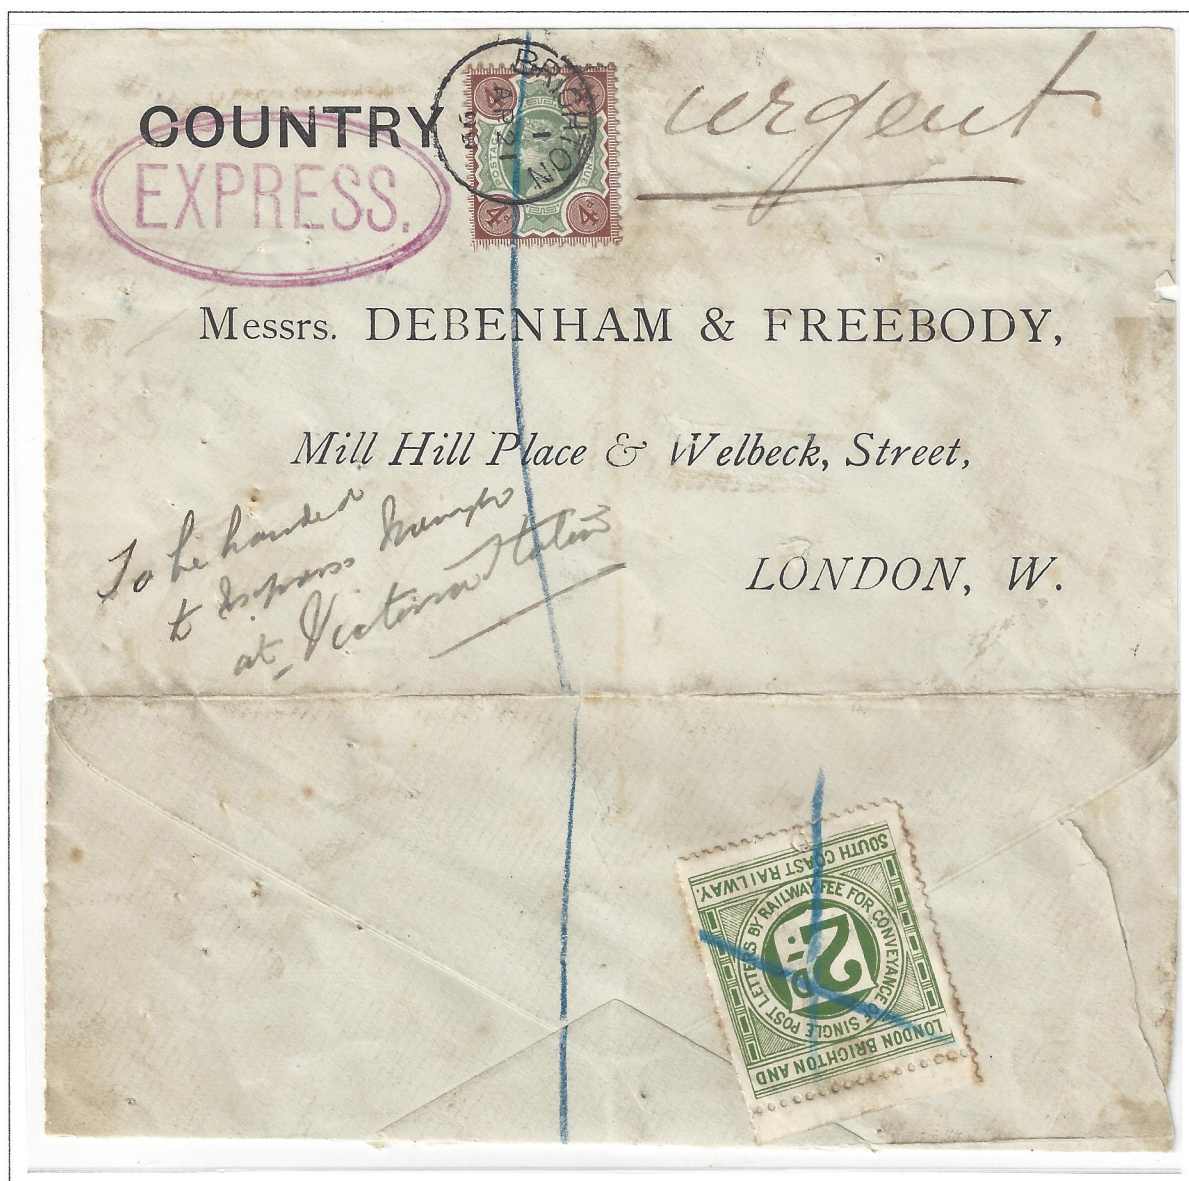 COUNTRY
EXPRESS.
BRIGHTON
1
AP 21
4D
4D
4D
4D
POSTAGE
urgent
Messrs. DEBENHAM & FREEBODY,
Mill Hill Place & Welbeck, Street,
LONDON, W.
To be handed
to Express
at Victoria Station
LONDON BRIGHTON AND
SOUTH COAST RAILWAY.
FEE FOR CONVEYANCE OF SINGLE POST LETTERS BY RAILWAY
2D